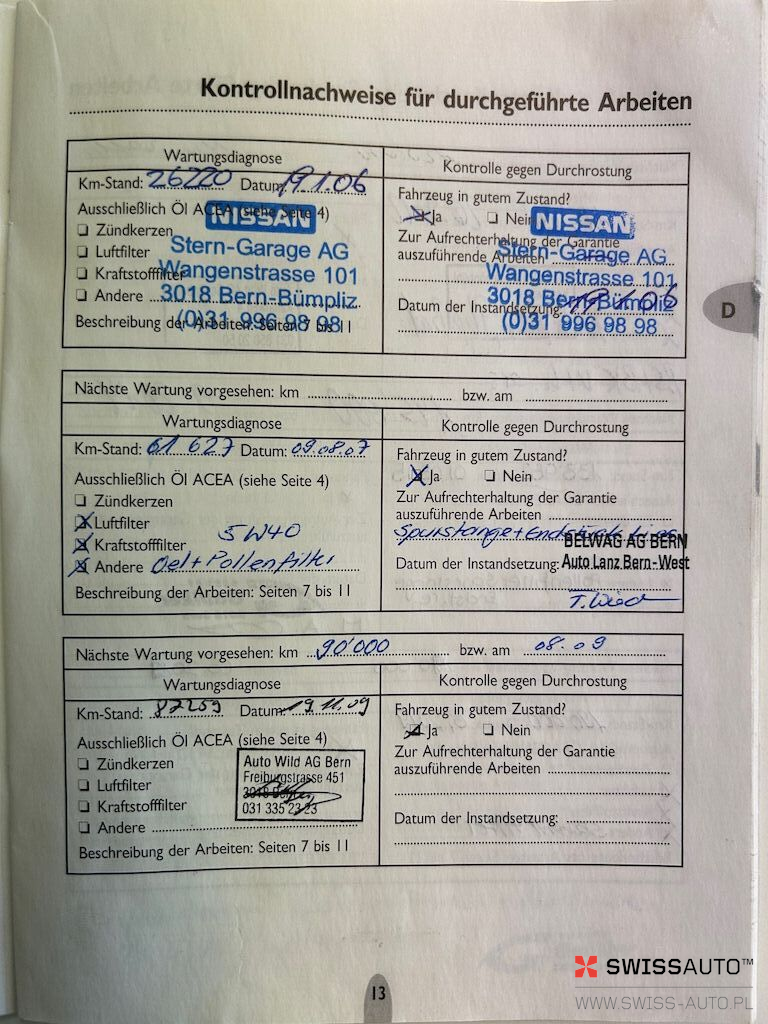 Kontrollnachweise für durchgeführte Arbeiten
Wartungsdiagnose
Km-Stand: 26220 Datum: 19.1.06
Ausschließlich Öl ACEA (siehe Seite 4)
Zündkerzen
Luftfilter
Kraftstofffilter
Andere
Beschreibung der Arbeiten: Seiten 7 bis 11
NISSAN
Stern-Garage AG
Wangenstrasse 101
3018 Bern-Bümpliz
(0)31 996 98 98
Kontrolle gegen Durchrostung
Fahrzeug in gutem Zustand?
Ja Nein
Zur Aufrechterhaltung der Garantie
auszuführende Arbeiten
Datum der Instandsetzung: 19.1.06
NISSAN
Stern-Garage AG
Wangenstrasse 101
3018 Bern-Bümpliz
(0)31 996 98 98
D
Nächste Wartung vorgesehen: km bzw. am
Wartungsdiagnose
Km-Stand: 61 627 Datum: 09.08.07
Ausschließlich Öl ACEA (siehe Seite 4)
Zündkerzen
Luftfilter
5W40
Kraftstofffilter
Andere Oel + Pollenfilter
Beschreibung der Arbeiten: Seiten 7 bis 11
Kontrolle gegen Durchrostung
Fahrzeug in gutem Zustand?
Ja Nein
Zur Aufrechterhaltung der Garantie
auszuführende Arbeiten
Spurstange + Endstück
BELWAG AG BERN
Datum der Instandsetzung: Auto Lanz Bern-West
Nächste Wartung vorgesehen: km 90'000 bzw. am 08.09
Wartungsdiagnose
Km-Stand: 87259 Datum: 19.11.09
Ausschließlich Öl ACEA (siehe Seite 4)
Zündkerzen
Luftfilter
Kraftstofffilter
Andere
Beschreibung der Arbeiten: Seiten 7 bis 11
Auto Wild AG Bern
Freiburgstrasse 451
3018
031 335 23 23
Kontrolle gegen Durchrostung
Fahrzeug in gutem Zustand?
Ja Nein
Zur Aufrechterhaltung der Garantie
auszuführende Arbeiten
Datum der Instandsetzung:
13
SWISSAUTO™
WWW.SWISS-AUTO.PL